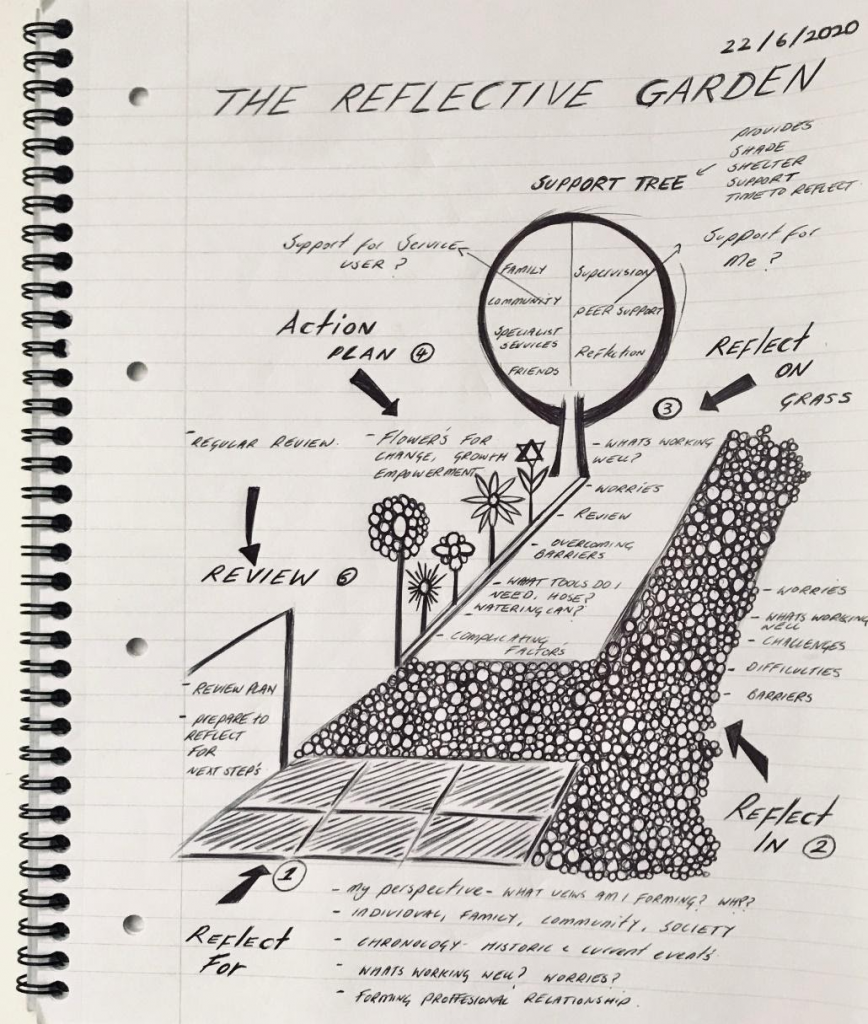 22/6/2020
THE REFLECTIVE GARDEN
PROVIDES
SHADE
SHELTER
SUPPORT
TIME TO REFLECT
SUPPORT TREE
Support for Service
USER?
Support for
Me?
FAMILY
COMMUNITY
SPECIALIST
SERVICES
FRIENDS
SUPERVISION
PEER SUPPORT
Reflection
Action
PLAN 4
REFLECT
ON
GRASS
3
- REGULAR REVIEW.
- FLOWER'S FOR
CHANGE, GROWTH
EMPOWERMENT
- WHATS WORKING
WELL?
- WORRIES
- REVIEW
- OVERCOMING
BARRIERS
- WHAT TOOLS DO I
NEED, HOSE?
WATERING CAN?
- COMPLICATING
FACTORS
REVIEW 5
- REVIEW PLAN
- PREPARE TO
REFLECT
FOR
NEXT STEP'S
- WORRIES
- WHATS WORKING
WELL
- CHALLENGES
- DIFFICULTIES
- BARRIERS
REFLECT
IN 2
1
REFLECT
FOR
- My perspective - WHAT VIEWS AM I FORMING? WHY?
- INDIVIDUAL, FAMILY, COMMUNITY, SOCIETY
- CHRONOLOGY - HISTORIC & current events
- WHATS WORKING WELL? WORRIES?
- FORMING PROFFESIONAL RELATIONSHIP.